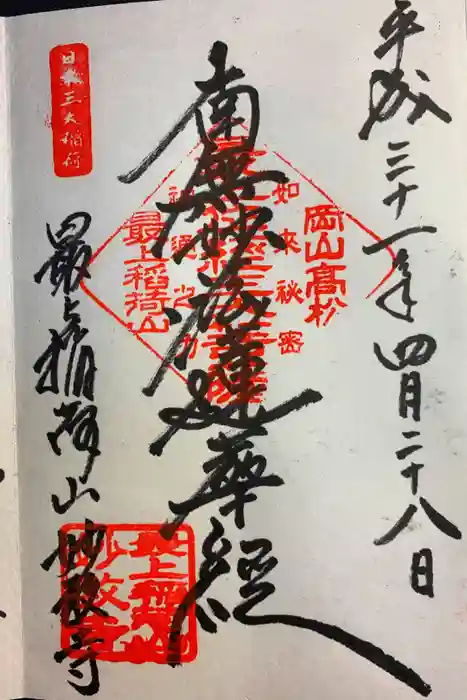 平成三十一年四月二十八日
岡山高松
如来秘密
南無妙法蓮華経
神通之力
最上稲荷山
日本三大稲荷
最上稲荷山妙教寺